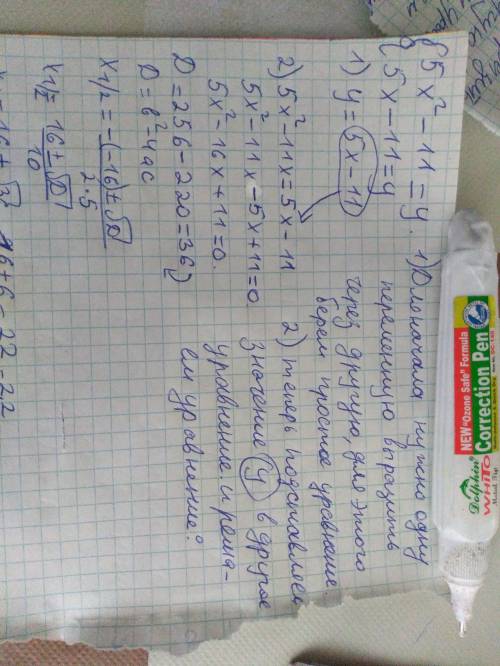 {5x²-11=y.
{5x-11=y
1) y=5x-11
2) 5x²-11x=5x-11
5x²-11x-5x+11=0
5x²-16x+11=0.
D=256-220=36)
D=в²-4ас
x₁/₂=-(-16)±√D
2·5
x₁/₂=16±√D
10
16+6=22=22
1) Для начала нужно одну
переменную выразить
через другую, для этого
берем простое уравнение.
2) теперь подставляем
значение (y) в другое
уравнение и реша-
ем уравнение:
Dolphin
WHITO
NEW "Ozone Safe" Formula
Correction Pen